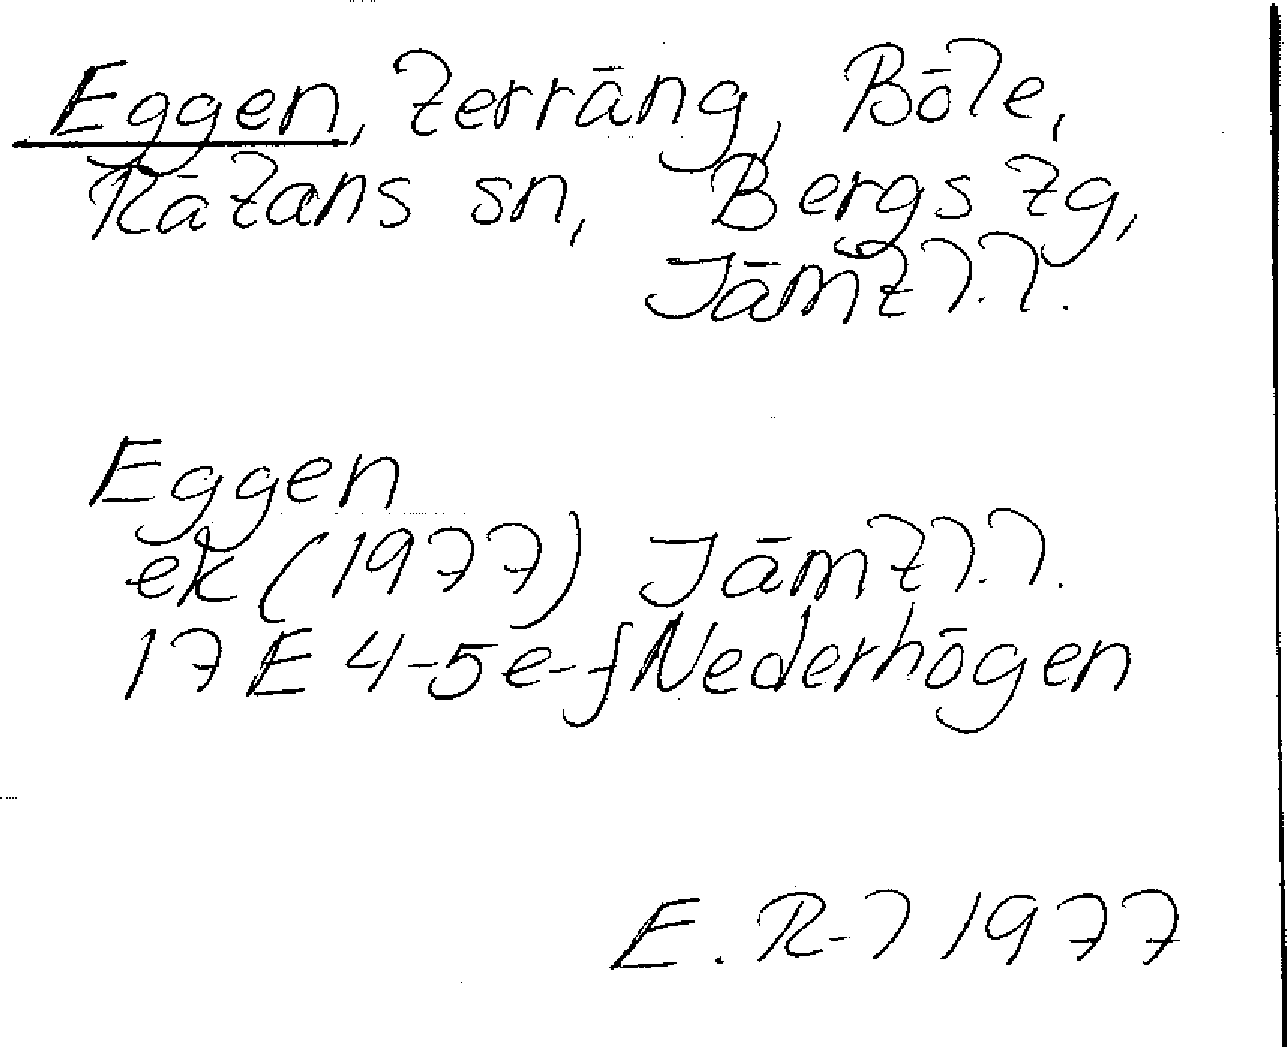 Eggen, terräng, Böle,
Rätans sn, Bergs tg,
Jämtl.l.
Eggen
ek (1977) Jämtl.l.
17 E 4-5e-f Nederhögen
E. R-l 1977